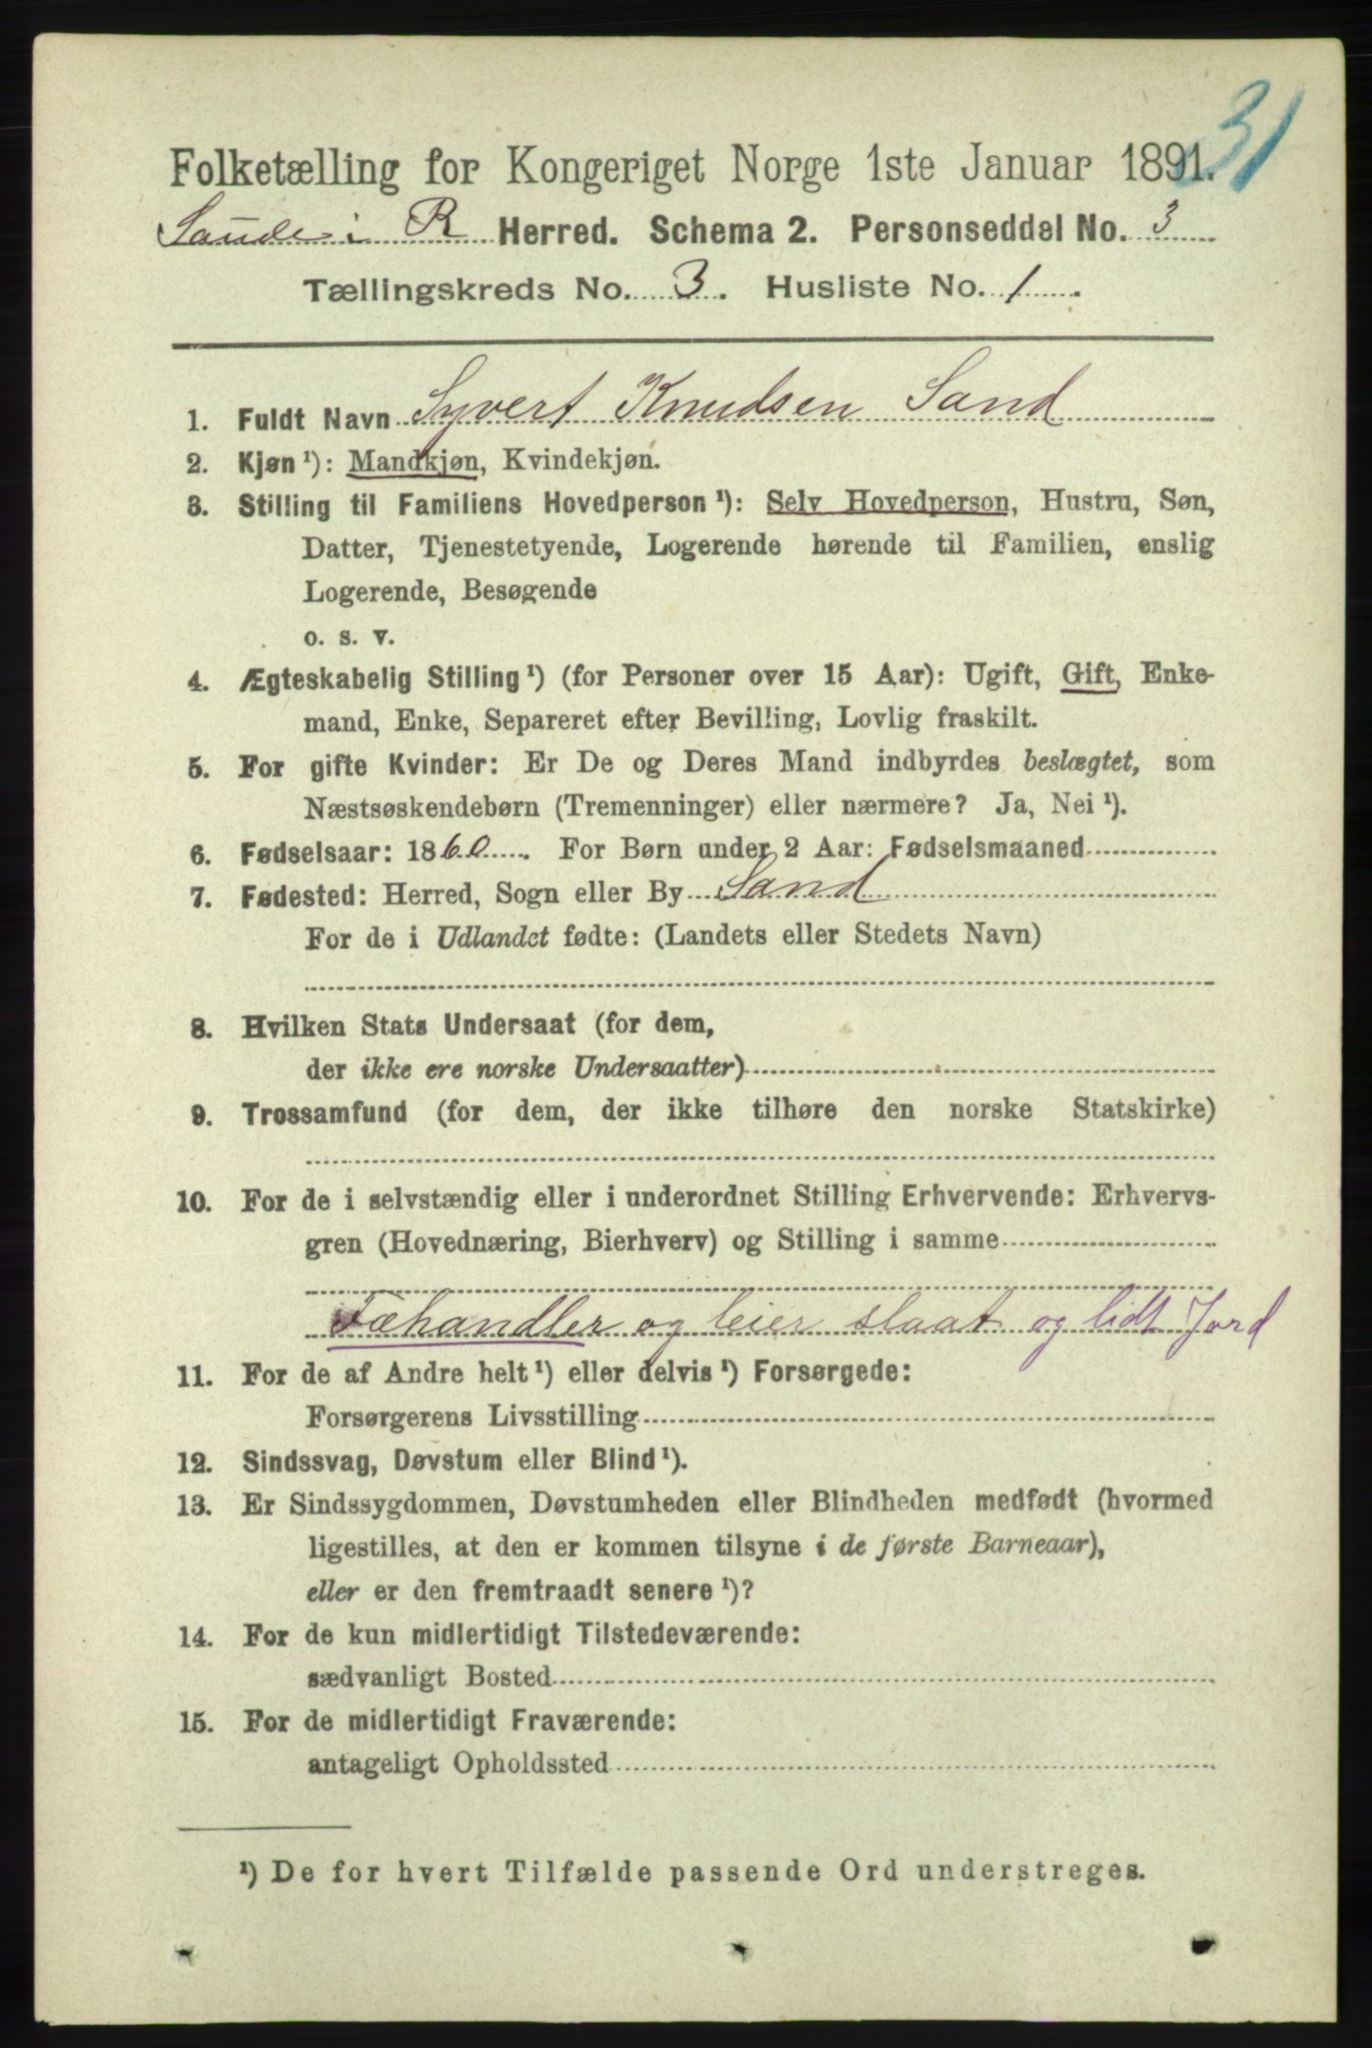 31
Folketælling for Kongeriget Norge 1ste Januar 1891.
Saude i R Herred. Schema 2. Personseddel No. 3
Tællingskreds No. 3. Husliste No. 1.
1. Fuldt Navn Syvert Knudsen Sand
2. Kjøn ¹): Mandkjøn, Kvindekjøn.
3. Stilling til Familiens Hovedperson ¹): Selv Hovedperson, Hustru, Søn,
Datter, Tjenestetyende, Logerende hørende til Familien, enslig
Logerende, Besøgende
o. s. v.
4. Ægteskabelig Stilling ¹) (for Personer over 15 Aar): Ugift, Gift, Enke-
mand, Enke, Separeret efter Bevilling, Lovlig fraskilt.
5. For gifte Kvinder: Er De og Deres Mand indbyrdes beslægtet, som
Næstsøskendebørn (Tremenninger) eller nærmere? Ja, Nei ¹).
6. Fødselsaar: 1860. For Børn under 2 Aar: Fødselsmaaned
7. Fødested: Herred, Sogn eller By Sand
For de i Udlandet fødte: (Landets eller Stedets Navn)
8. Hvilken Stats Undersaat (for dem,
der ikke ere norske Undersaatter)
9. Trossamfund (for dem, der ikke tilhøre den norske Statskirke)
10. For de i selvstændig eller i underordnet Stilling Erhvervende: Erhvervs-
gren (Hovednæring, Bierhverv) og Stilling i samme
Fæhandler og leier slaat og lidt Jord
11. For de af Andre helt ¹) eller delvis ¹) Forsørgede:
Forsørgerens Livsstilling
12. Sindssvag, Døvstum eller Blind ¹).
13. Er Sindssygdommen, Døvstumheden eller Blindheden medfødt (hvormed
ligestilles, at den er kommen tilsyne i de første Barneaar),
eller er den fremtraadt senere ¹)?
14. For de kun midlertidigt Tilstedeværende:
sædvanligt Bosted
15. For de midlertidigt Fraværende:
antageligt Opholdssted
¹) De for hvert Tilfælde passende Ord understreges.